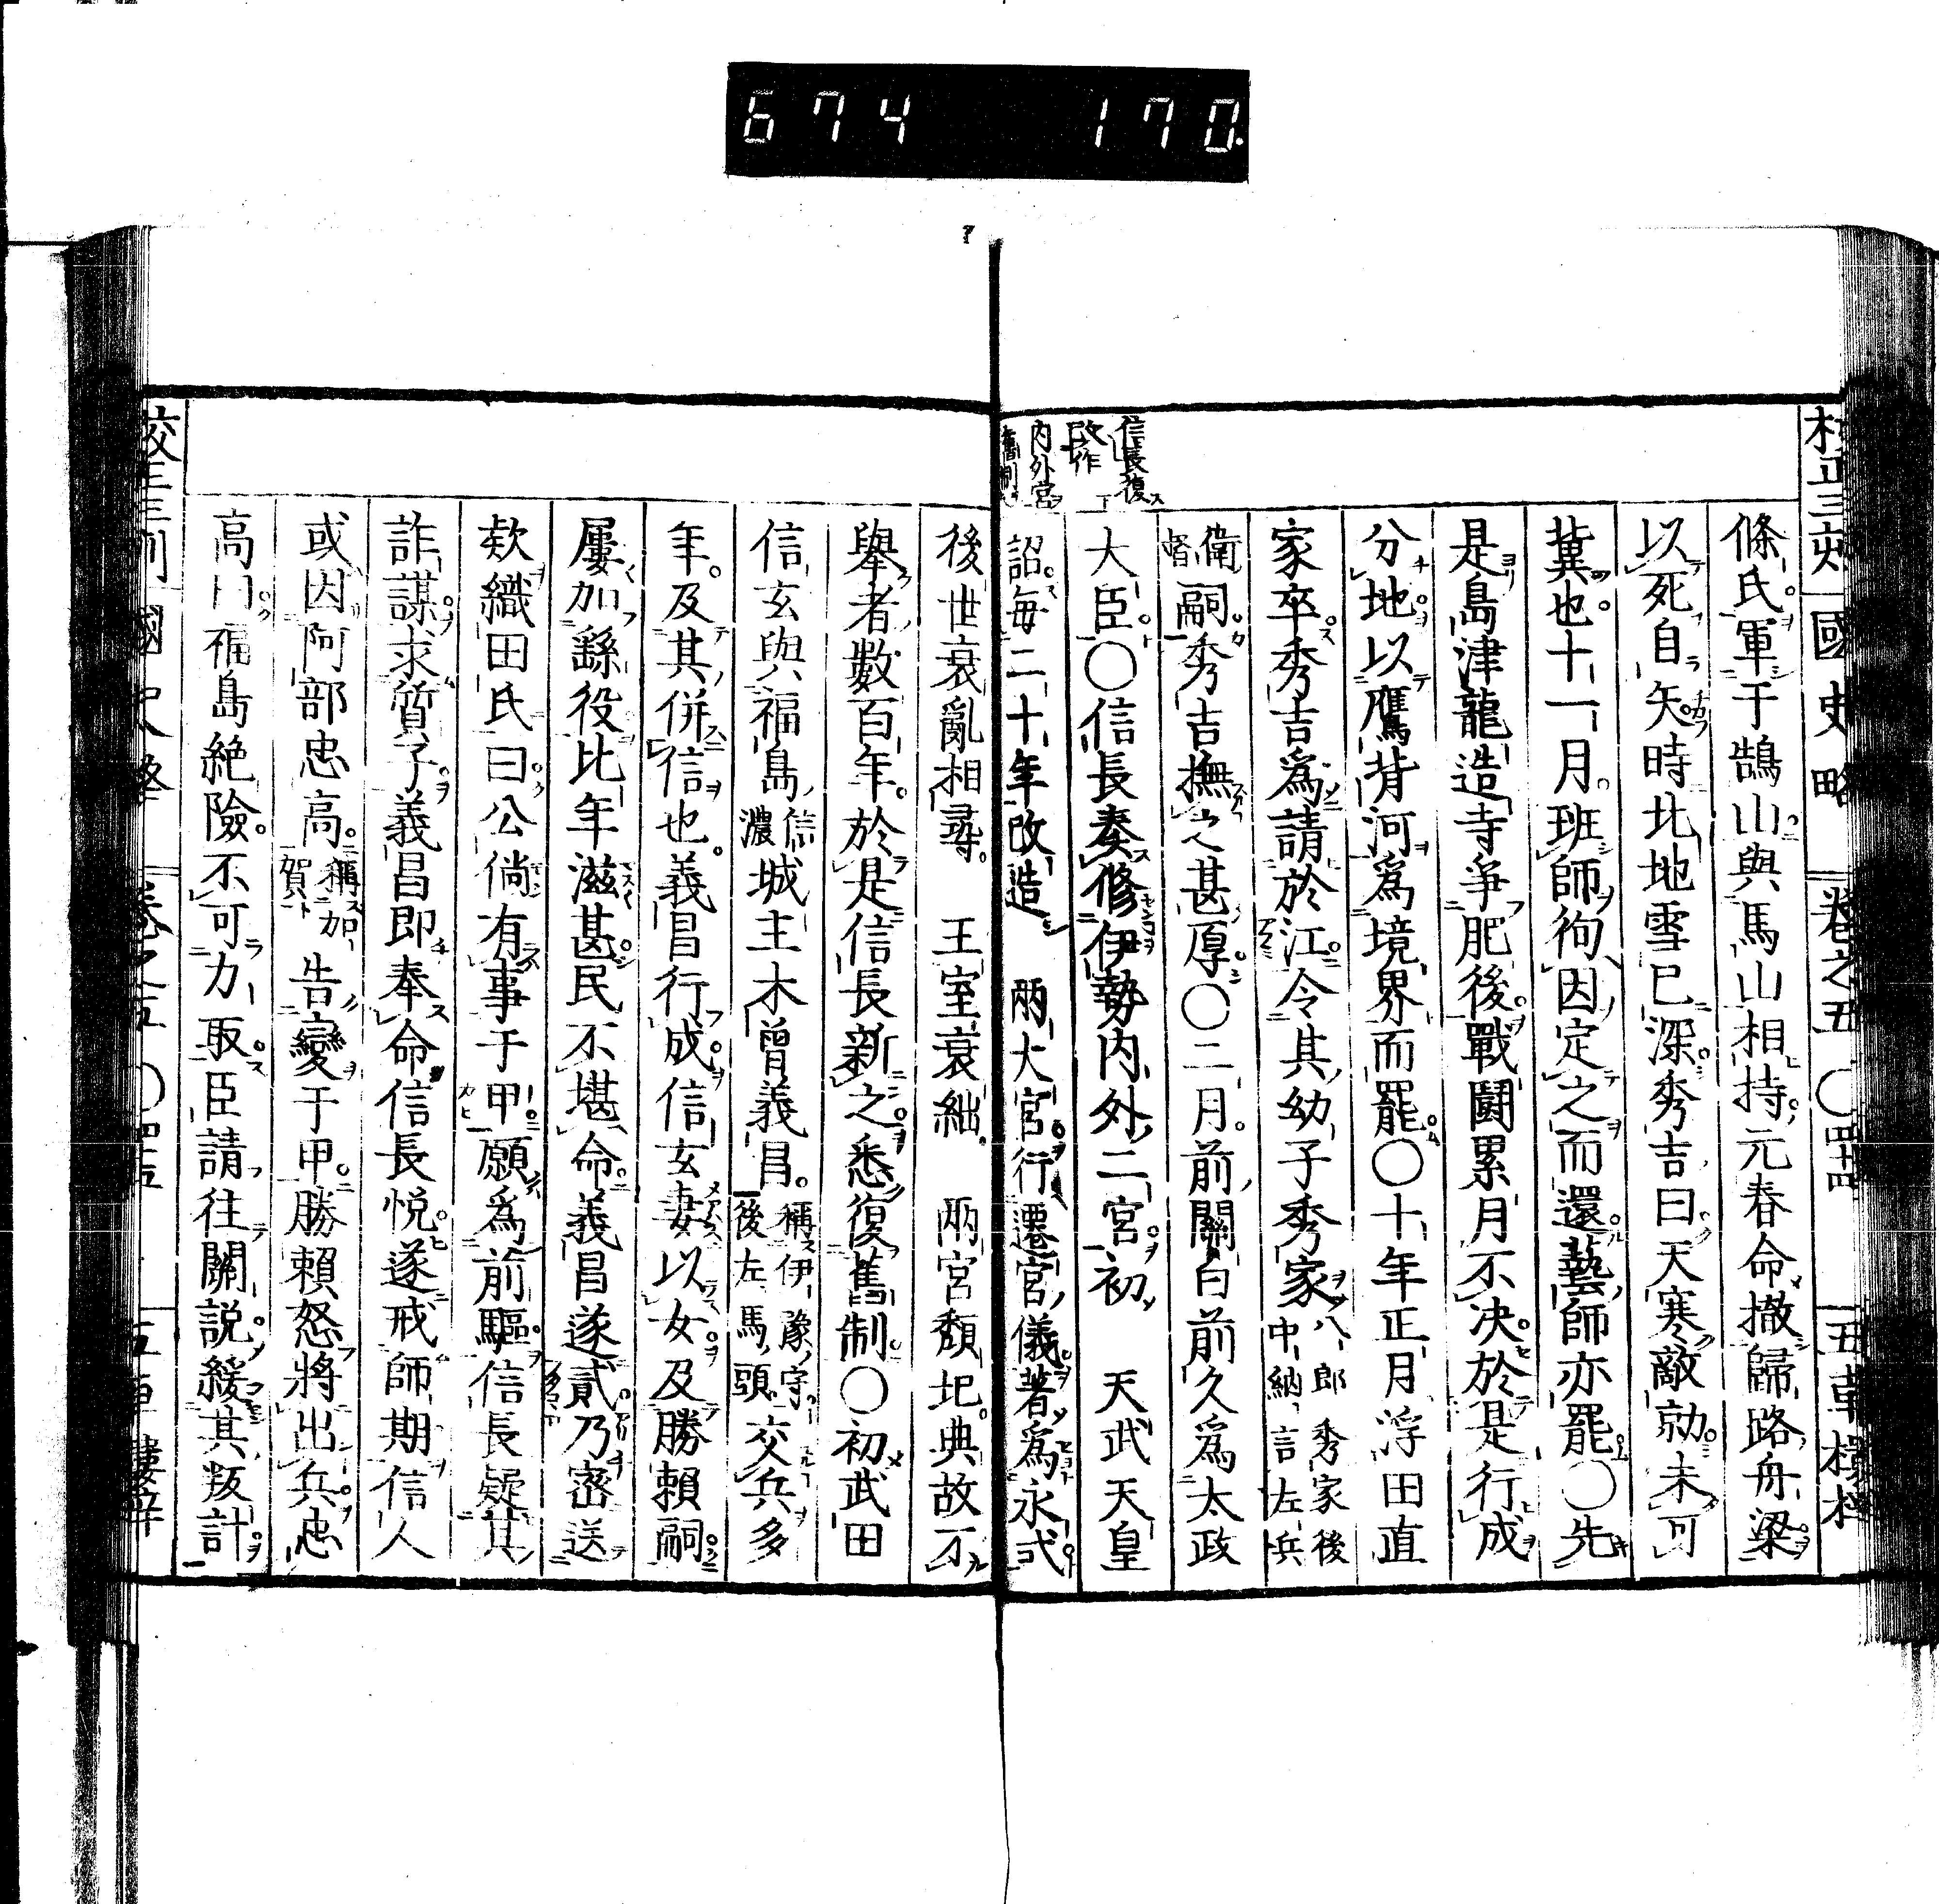 674 170
校正三刻 國史略 卷之五 ○四十四 五車樓梓
信長復
改作
内外宮
舊制
條氏軍于鵠山與馬山相持元春命撤歸路舟梁
以死自矢時北地雪已深秀吉曰天寒敵勍未可
冀也十一月班師徇因定之而還藝師亦罷○先
是島津龍造寺爭肥後戰鬪累月不決於是行成
分地以鷹背河爲境界而罷○十年正月浮田直
家卒秀吉爲請於江令其幼子秀家八郎秀家後中納言左兵
衛督嗣秀吉撫之甚厚○二月前關白前久爲太政
大臣○信長奏修伊勢内外二宮初 天武天皇
詔每二十年改造 兩大宮行遷宮儀著爲永式
後世衰亂相尋 王室衰絀 兩宮頽圯典故不
舉者數百年於是信長新之悉復舊制○初武田
信玄與福島信濃城主木曾義昌稱伊豫守後左馬頭交兵多
年及其併信也義昌行成信玄妻以女及勝賴嗣
屢加繇役比年滋甚民不堪命義昌遂貳乃密送
欵織田氏曰公倘有事于甲願爲前驅信長疑其
詐謀求質子義昌即奉命信長悦遂戒師期信人
或因阿部忠高稱加賀告變于甲勝賴怒將出兵忠
高曰福島絶險不可力取臣請往關説緩其叛計
校正三刻 國史略 卷之五 五車樓梓